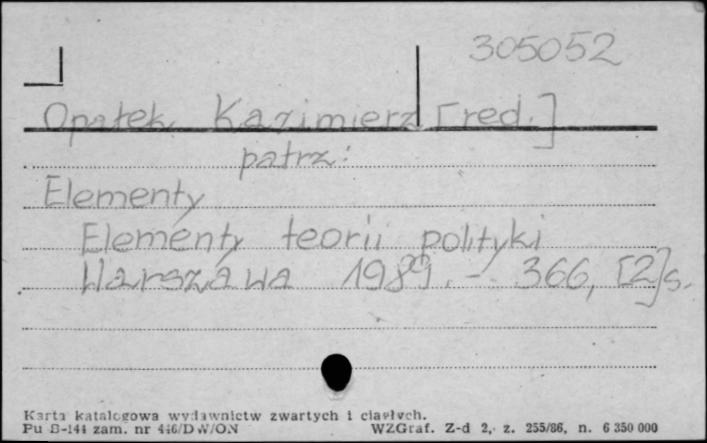 305052
Opałek Kazimierz [red.]
patrz:
Elementy
Elementy teorii polityki
Warszawa 1989. - 366, [2]s.
Karta katalogowa wydawnictw zwartych i ciągłych.
Pu B-144 zam. nr 446/DW/ON WZGraf. Z-d 2, z. 255/86, n. 6 350 000